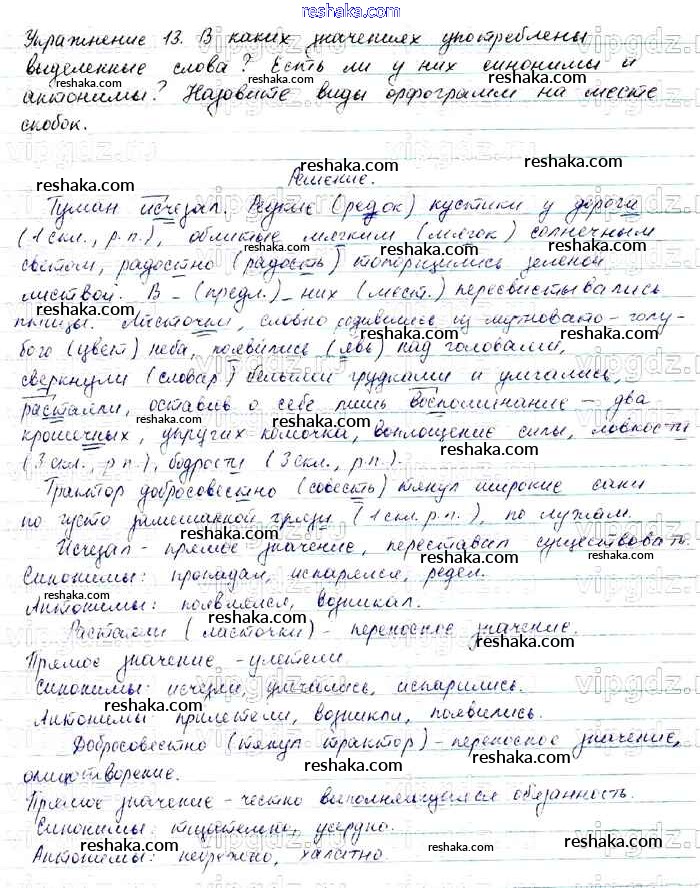 reshaka.com
Упражнение 13. В каких значениях употреблены
выделенные слова? Есть ли у них синонимы и
антонимы? Назовите виды орфограмм на месте
скобок.
Решение.
Туман исчезал. Редкие (редок) кустики у дороги
(1 скл., р.п.), облитые мягким (мягок) солнечным
светом, радостно (радость) топорщились зеленой
листвой. В - (предл.) - них (мест.) пересвистывались
птицы. Ласточки, словно родившись из мутновато-голу-
бого (цвет) неба, появились (явь) над головами,
сверкнули (словар) белыми грудками и умчались,
растаяли, оставив о себе лишь воспоминание - два
крошечных, упругих комочка, воплощение силы, ловкости
(3 скл., р.п.), бодрости (3 скл., р.п.).
Трактор добросовестно (совесть) тянул широкие сани
по густо замешанной грязи (1 скл. р.п.), по лужам.
Исчезал - прямое значение, переставал существовать.
Синонимы: пропадал, испарялся, редел.
Антонимы: появлялся, возникал.
Растаяли (ласточки) - переносное значение.
Прямое значение - улетели
Синонимы: исчезли, умчались, испарились.
Антонимы: прилетели, возникли, появились.
Добросовестно (тянул трактор) - переносное значение,
олицетворение.
Прямое значение - честно выполняющийся обязанность.
Синонимы: тщательно, усердно.
Антонимы: небрежно, халатно.